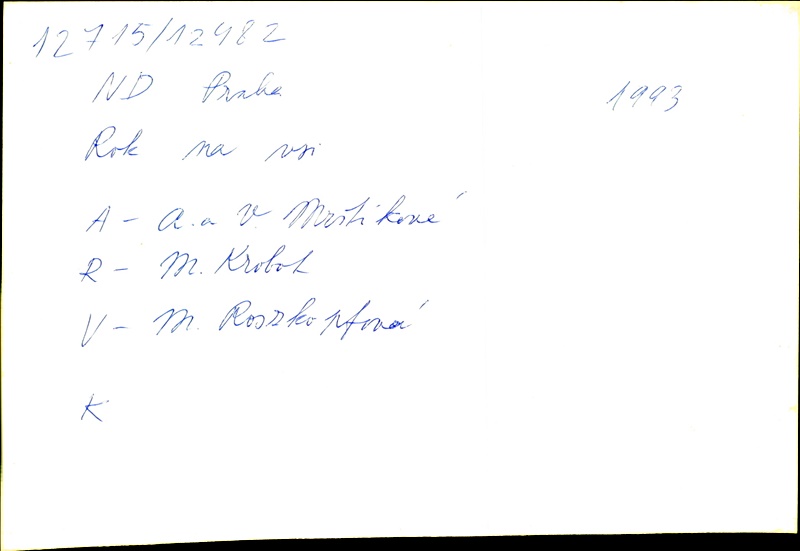 12715/12482
ND Praha 1993
Rok na vsi
A - A. a V. Mrštíkové
R - M. Krobot
V - M. Roszkopfová
K